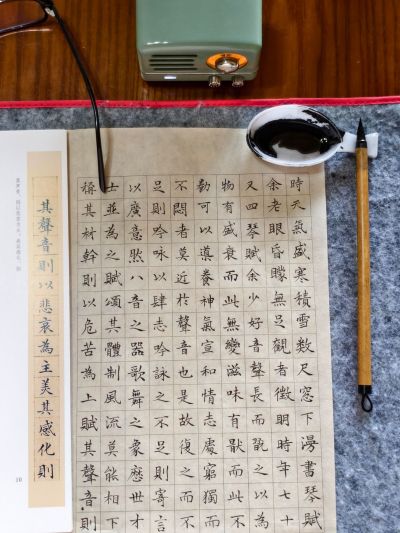 時天氣盛寒積雪数尺窓下漫書琴賦
余老眼昏矇無足觀者徵明時年七十
又四琴賦余少好音聲長而翫之以為
物有盛衰而此無變滋味有猒而此不
勌可以導養神氣宣和情志處窮獨而
不悶者莫近於聲音也是故復之而不
足則吟詠以肆志吟詠之不足則寄言
以廣意然八音之器歌舞之象歷世才
士並為之賦頌其體制風流莫能相下
稱其材幹則以危苦為上賦其聲音則
其聲音則以悲哀為主美其感化則
10